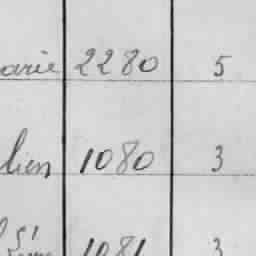 arie 2280 5
lien 1080 3
St 1081 3